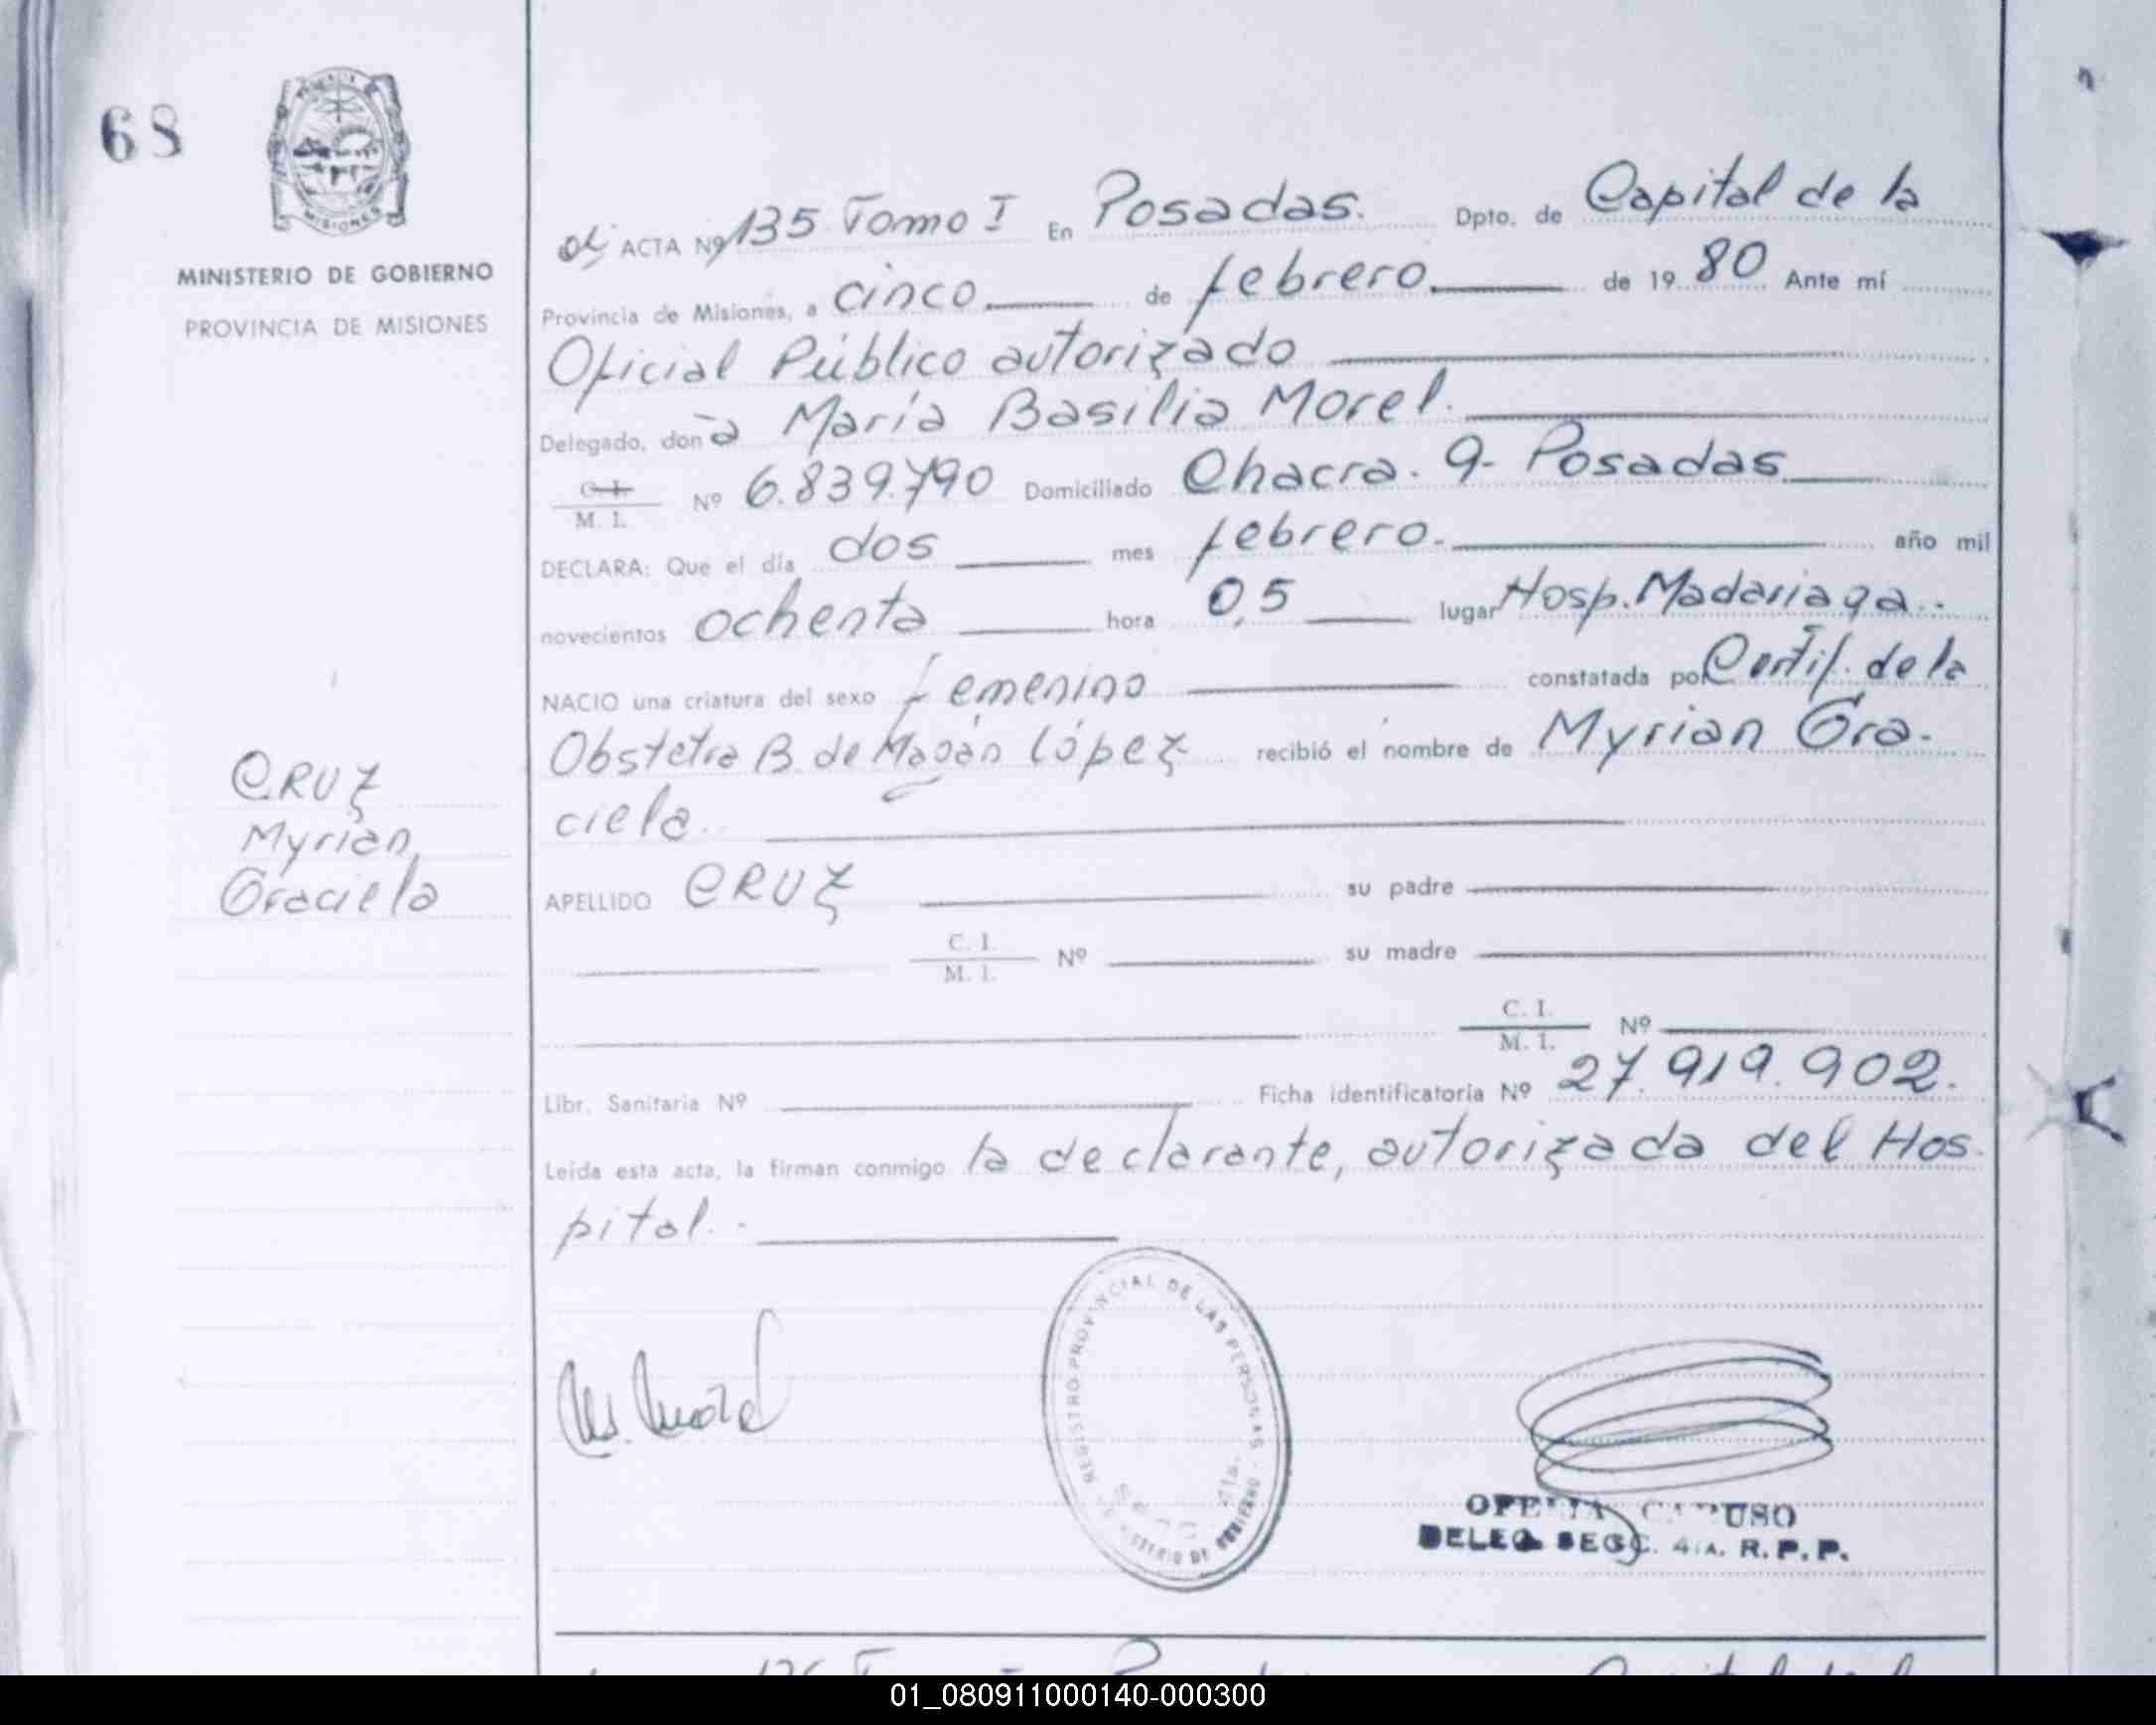 68
MISIONES
MINISTERIO DE GOBIERNO
PROVINCIA DE MISIONES
ACTA Nº 135 Tomo I En Posadas. Dpto. de Capital de la
Provincia de Misiones, a cinco de febrero. de 19 80 Ante mí
Oficial Público autorizado
Delegado, don a María Basilia Morel.
C. I.
M. I. Nº 6.839.790 Domiciliado Chacra. 9- Posadas
DECLARA: Que el día dos mes febrero. año mil
novecientos ochenta hora 0,5 lugar Hosp. Madariaga.
NACIO una criatura del sexo femenino constatada por Certif. de la
Obstetra B. de López recibió el nombre de Myrian Gra-
ciela.
CRUZ
Myrian
Graciela
APELLIDO CRUZ su padre
C. I.
M. I. Nº su madre
C. I.
M. I. Nº
Libr. Sanitaria Nº Ficha identificatoria Nº 27.919.902.
Leída esta acta, la firman conmigo la declarante, autorizada del Hos-
pital.
REGISTRO PROVINCIAL DE LAS PERSONAS
DELEG. SECC. 4ta. R. P. P.
01_080911000140-000300